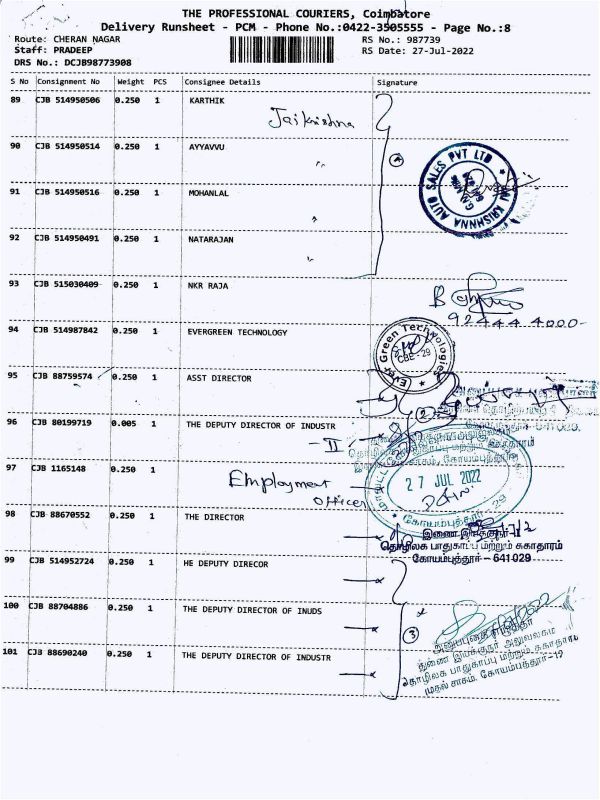 THE PROFESSIONAL COURIERS, Coimbatore
Delivery Runsheet - PCM - Phone No.:0422-3505555 - Page No.:8
Route: CHERAN NAGAR RS No.: 987739
Staff: PRADEEP RS Date: 27-Jul-2022
DRS No.: DCJB98773908
S No Consignment No Weight PCS Consignee Details Signature
89 CJB 514950506 0.250 1 KARTHIK
Jaikrishna
90 CJB 514950514 0.250 1 AYYAVVU
JAI KRISHNNA AUTO SALES PVT LTD
91 CJB 514950516 0.250 1 MOHANLAL
92 CJB 514950491 0.250 1 NATARAJAN
93 CJB 515030409 0.250 1 NKR RAJA
94 CJB 514987842 0.250 1 EVERGREEN TECHNOLOGY
Ever Green Technologies
CBE-29
95 CJB 88759574 0.250 1 ASST DIRECTOR
2
96 CJB 80199719 0.005 1 THE DEPUTY DIRECTOR OF INDUSTR
II
97 CJB 1165148 0.250 1
Employment
officer
27 JUL 2022
கோயம்புத்தூர் - 29
98 CJB 88670552 0.250 1 THE DIRECTOR
இணை இயக்குநர்
தொழிலக பாதுகாப்பு மற்றும் சுகாதாரம்
கோயம்புத்தூர் - 641 029
99 CJB 514952724 0.250 1 HE DEPUTY DIRECOR
100 CJB 88704886 0.250 1 THE DEPUTY DIRECTOR OF INUDS
3
101 CJB 88690240 0.250 1 THE DEPUTY DIRECTOR OF INDUSTR
துணை இயக்குநர் அலுவலகம்
தொழிலக பாதுகாப்பு மற்றும் சுகாதாரம்